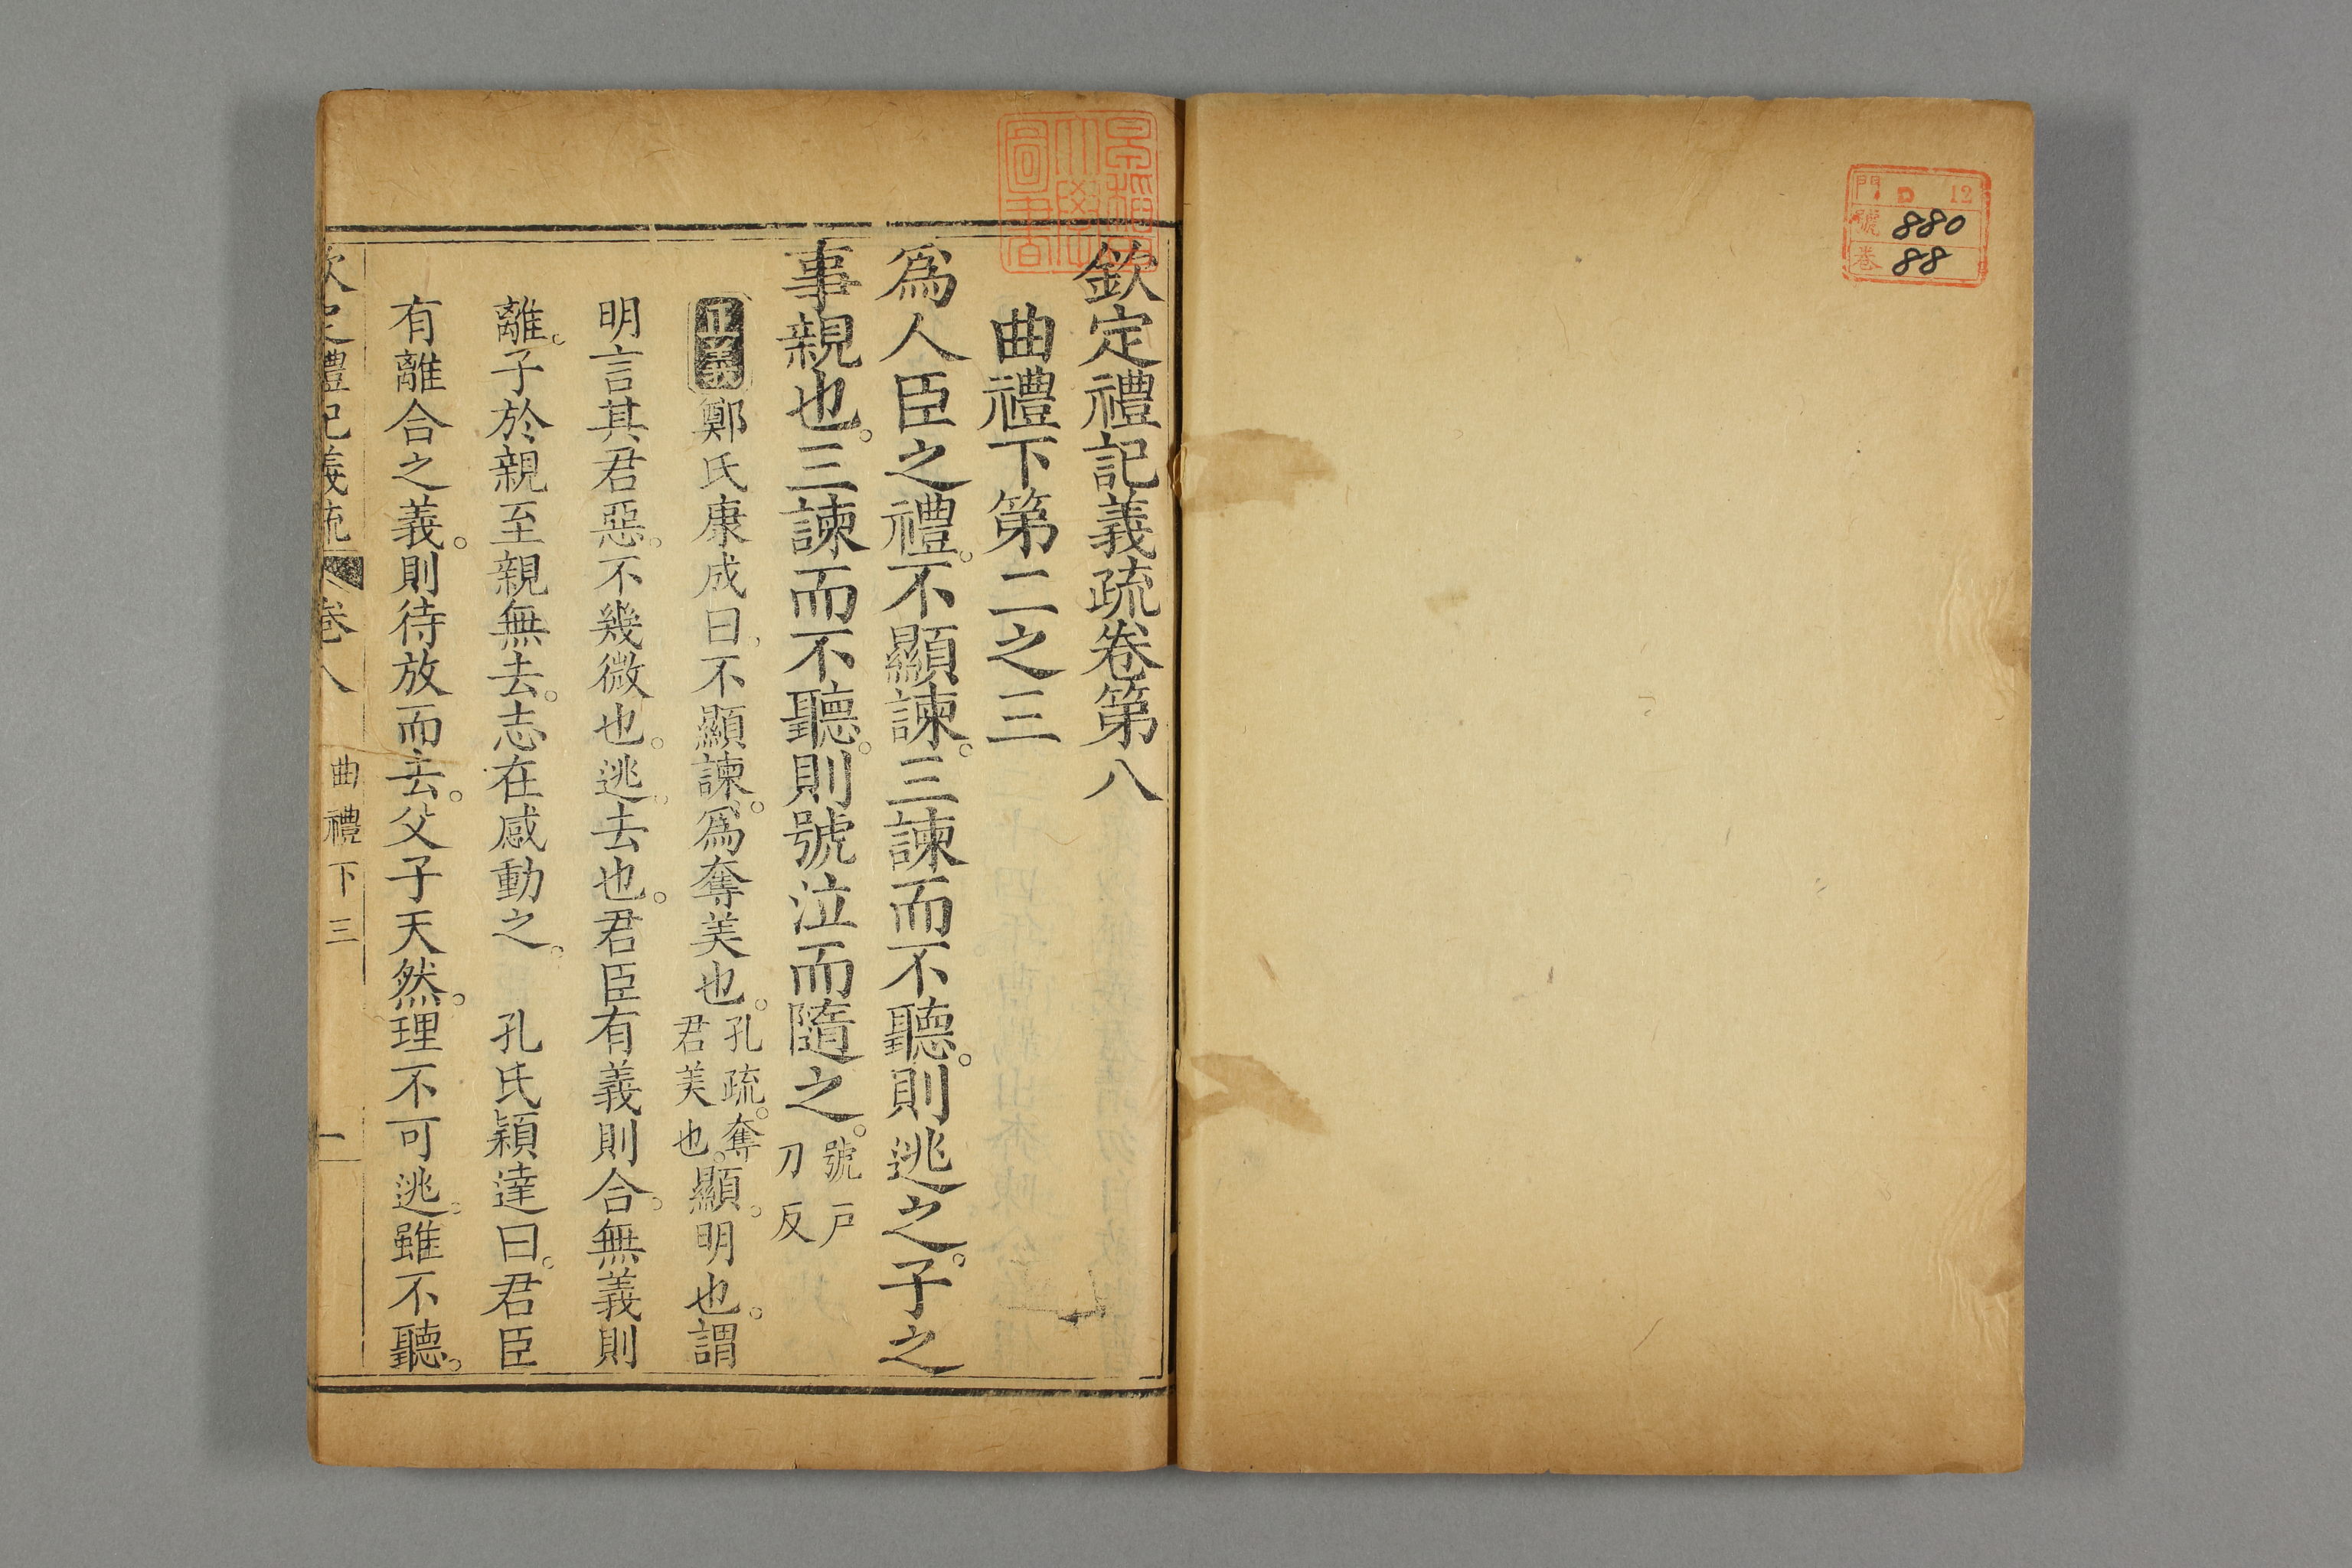 門 D 12
號 880
卷 88
欽定禮記義疏卷第八
曲禮下第二之三
爲人臣之禮。不顯諫。三諫而不聽。則逃之。子之
事親也。三諫而不聽。則號泣而隨之。號戶刀反
正義鄭氏康成曰、不顯諫。爲奪美也。孔疏。奪君美也。顯。明也。謂
明言其君惡。不幾微也。逃。去也。君臣有義則合。無義則
離。子於親至親無去。志在感動之。 孔氏穎達曰。君臣
有離合之義。則待放而去。父子天然。理不可逃。雖不聽。
欽定禮記義疏 卷八 曲禮下三 一